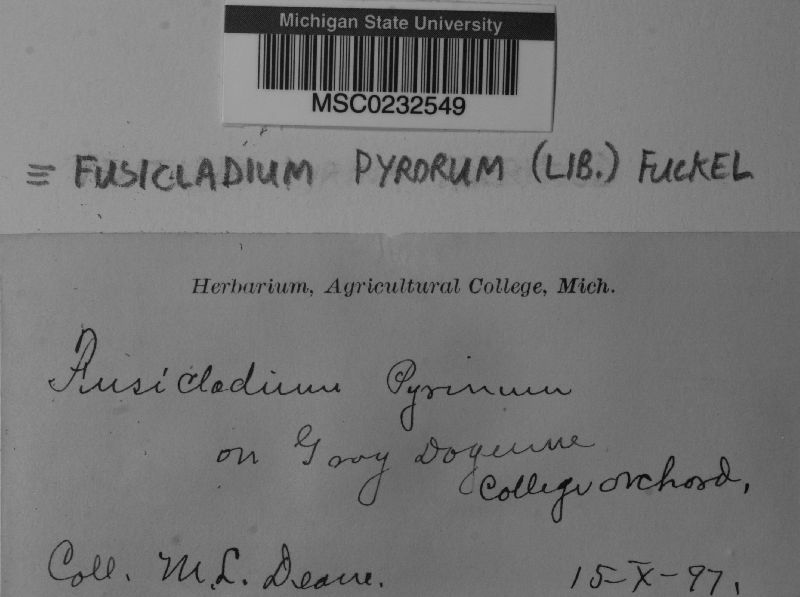 Michigan State University
MSC0232549
≡ FUSICLADIUM PYRORUM (LIB.) FUCKEL
Herbarium, Agricultural College, Mich.
Fusicladium Pyrinum
on Gray Doyenne
College orchard,
Coll. M. L. Deane.
15-X-97.